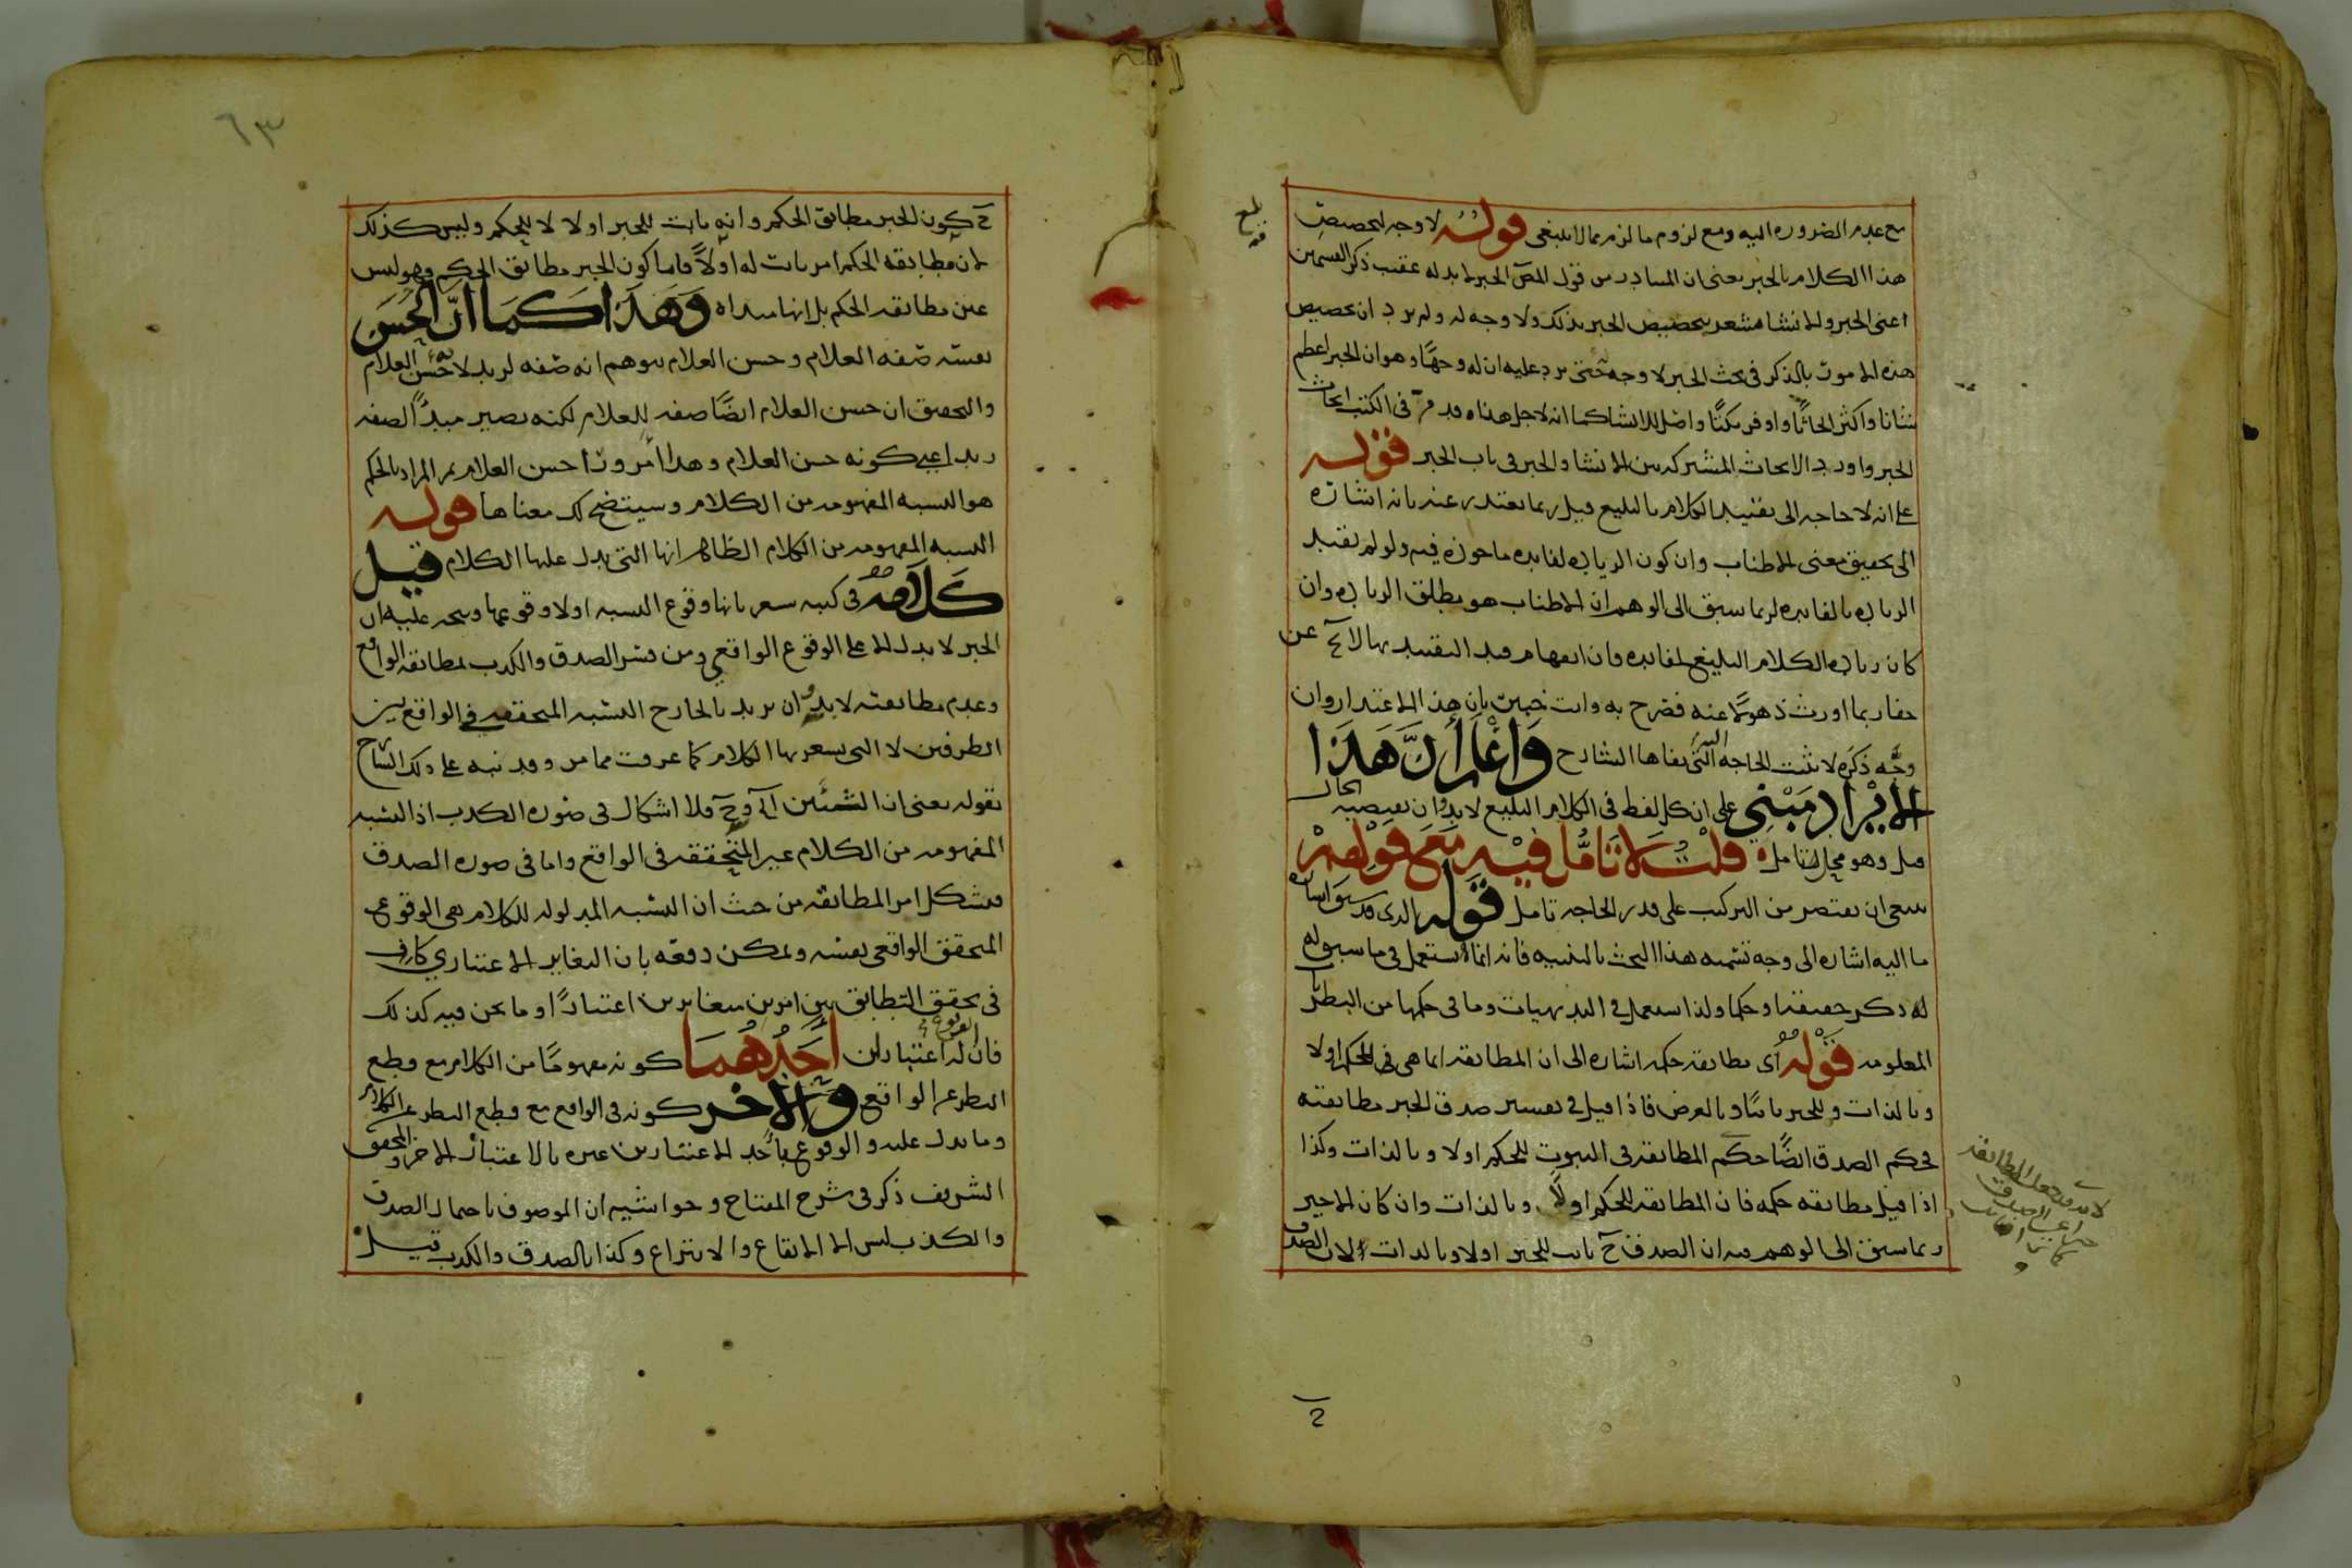 مع عدم الضروره اليه ومع لزوم ما لزم مما لا ينبغى قوله لا وجه لتخصيص
هذا الكلام بالخبر يعنى ان المتبادر من قول المص الخبر لا بد له عقيب ذكر القسمين
اعنى الخبر والانشا مشعر بتخصيص الخبر بذلك ولا وجه له ولم يرد ان تخصيص
هذه الامور بالذكر فى بحث الخبر لا وجه له حتى يرد عليه ان له وجها وهو ان الخبر اعظم
شانا واكثر ابحاثا واوفر نكتا واصل للانشا كما انه لاجل هذا قدم فى الكتب ابحاث
الخبر واورد الابحاث المشتركه بين الانشا والخبر فى باب الخبر قوله
على انه لا حاجه الى تقييد الكلام بالبليغ قيل ربما يعتذر عنه بانه اشارة
الى تحقيق معنى الاطناب وان كون الزياده لفايده ماخوذه فيه ولو لم تقيد
الزياده بالفايده لربما سبق الى الوهم ان الاطناب هو مطلق الزياده وان
كان زياده الكلام البليغ لفايده فان انفهام قيد التقييد بها لا يخ عن
خفا ربما اورث ذهولا عنه فصرح به وانت خبير بان هذا الاعتذار وان
وجه ذكره لا يثبت الحاجه التى نفاها الشارح واعلم ان هذا
الايراد مبني على ان كل لفظ فى الكلام البليغ لا بد وان يقتضيه الحال
قيل وهو محل تامل قلت لا تامل فيه مع قولهم
ينبغى ان يقتصر من التركيب على قدر الحاجه تامل قوله الذى قد سبق اشاره
ما اليه اشاره الى وجه تسميه هذا البحث بالتنبيه فانه انما يستعمل فى ما سبق له
له ذكر حقيقه او حكما ولذا يستعمل فى البديهيات وما فى حكمها من النظريات
المعلومه قوله اى مطابقه حكمه اشاره الى ان المطابقه انما هى فى الحكم اولا
وبالذات وللخبر ثانيا وبالعرض فاذا قيل فى تفسير صدق الخبر مطابقته
فحكم الصدق ايضا حكم المطابقه فى الثبوت للحكم اولا وبالذات وكذا
اذا قيل مطابقه حكمه فان المطابقه للحكم اولا وبالذات وان كان الاخير
ربما سبق الى الوهم منه ان الصدق ح ثابت للخبر اولا وبالذات لان الصدق
ح كون الخبر مطابق الحكم وانه ثابت للخبر اولا لا للحكم وليس كذلك
لان مطابقه الحكم امر ثابت له اولا فاما كون الخبر مطابق الحكم وهو ليس
عين مطابقه الحكم بل انها مبداه وهذا كما ان الحسن
نفسه صفه الغلام وحسن الغلام يتوهم انه صفه لزيد لا حسن الغلام
والتحقيق ان حسن الغلام ايضا صفه للغلام لكنه يصير مبدأ لصفه
زيد اعنى كونه حسن الغلام وهذا امر ورا حسن الغلام ثم المراد بالحكم
هو النسبه المفهومه من الكلام وسيتضح لك معناها قوله
النسبه المفهومه من الكلام الظاهر انها التى يدل عليها الكلام قيل
كلامه فى كتبه يشعر بانها وقوع النسبه او لا وقوعها ويتجه عليه ان
الخبر لا يدل الا على الوقوع الواقعي ومن فسر الصدق والكذب بمطابقه الواقع
وعدم مطابقته لا بد وان يريد بالخارج النسبه المتحققه فى الواقع بين
الطرفين لا التى يشعر بها الكلام كما عرفت مما مر وقد نبه على ذلك الشارح
بقوله يعنى ان الشيئين الخ وح فلا اشكال فى صوره الكذب اذ النسبه
المفهومه من الكلام غير المتحققه فى الواقع واما فى صوره الصدق
فيشكل امر المطابقه من حيث ان النسبه المدلوله للكلام هى الوقوع
المتحقق الواقعى بعينه ويمكن دفعه بان التغاير الاعتباري كاف
فى تحقق التطابق بين امرين متغايرين اعتبارا وما نحن فيه كذلك
فان للوقوع اعتبارين احدهما كونه مفهوما من الكلام مع قطع
النظر عن الواقع والاخر كونه فى الواقع مع قطع النظر عن الكلام
وما يدل عليه والوقوع باحد الاعتبارين غيره بالاعتبار الاخر والمحقق
الشريف ذكر فى شرح المفتاح وحواشيه ان الموصوف باحتمال الصدق
والكذب ليس الا الايقاع والانتزاع وكذا بالصدق والكذب قيل
٦٣